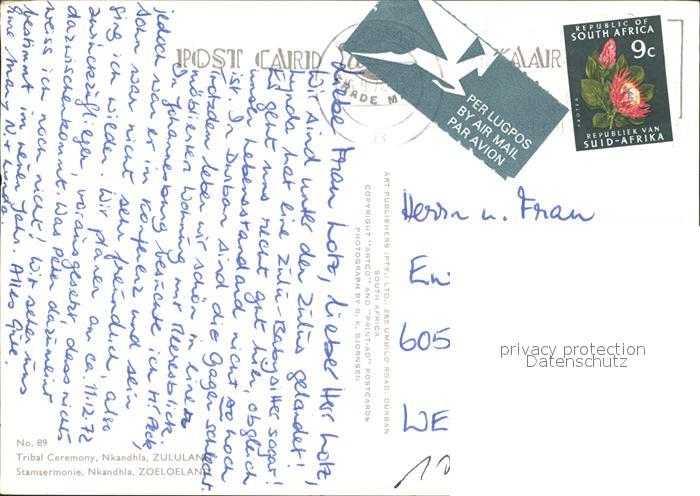 POST CARD
KAART
REPUBLIC OF
SOUTH AFRICA
9c
PROTEA
REPUBLIEK VAN
SUID-AFRIKA
PER LUGPOS
BY AIR MAIL
PAR AVION
Liebe Frau Lotz, lieber Herr Lotz,
Wir sind unter den Zulus gelandet!
Lynda hat eine Zulu-Babysitter sogar!
Es geht uns recht gut hier, obgleich
unser Lebensstandard nicht so hoch
ist. In Durban sind die Gagen schlecht.
Trotzdem leben wir schön in einer
möblierten Wohnung mit Meeresblick.
In Johannesburg besuchte ich Hr. Peck,
jedoch war er in Konferenz und sein
Sohn war nicht sehr freundlich, also
ging ich wieder. Wir planen am ca. 11.12.72
zurückzufliegen, vorausgesetzt, dass nichts
dazwischenkommt. Was Peter dazu meint
weiss ich noch nicht! Wir sehen uns
bestimmt im neuen Jahr. Alles Gute,
Eure Mary N + Lynda.
ART PUBLISHERS (PTY.) LTD., 265 UMBILO ROAD, DURBAN
SOUTH AFRICA
COPYRIGHT "ARTCO" AND "PRINT-AD" POSTCARDS
PHOTOGRAPH BY B. K. BJORNSEN
Herrn u. Frau
605
WE
privacy protection
Datenschutz
No. 89
Tribal Ceremony, Nkandhla, ZULULAND
Stamsermonie, Nkandhla, ZOELOELAND